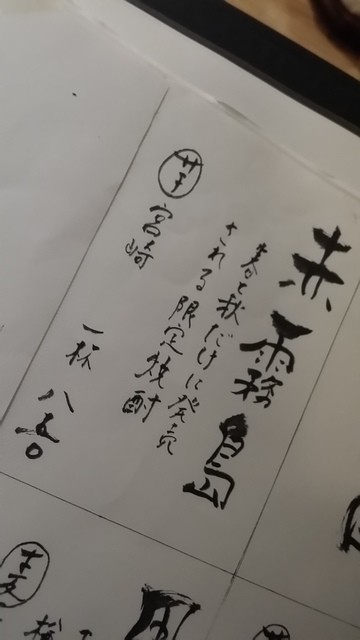 赤霧島
春と秋だけに発売
される限定焼酎
芋 宮崎
一杯 八五〇
麦